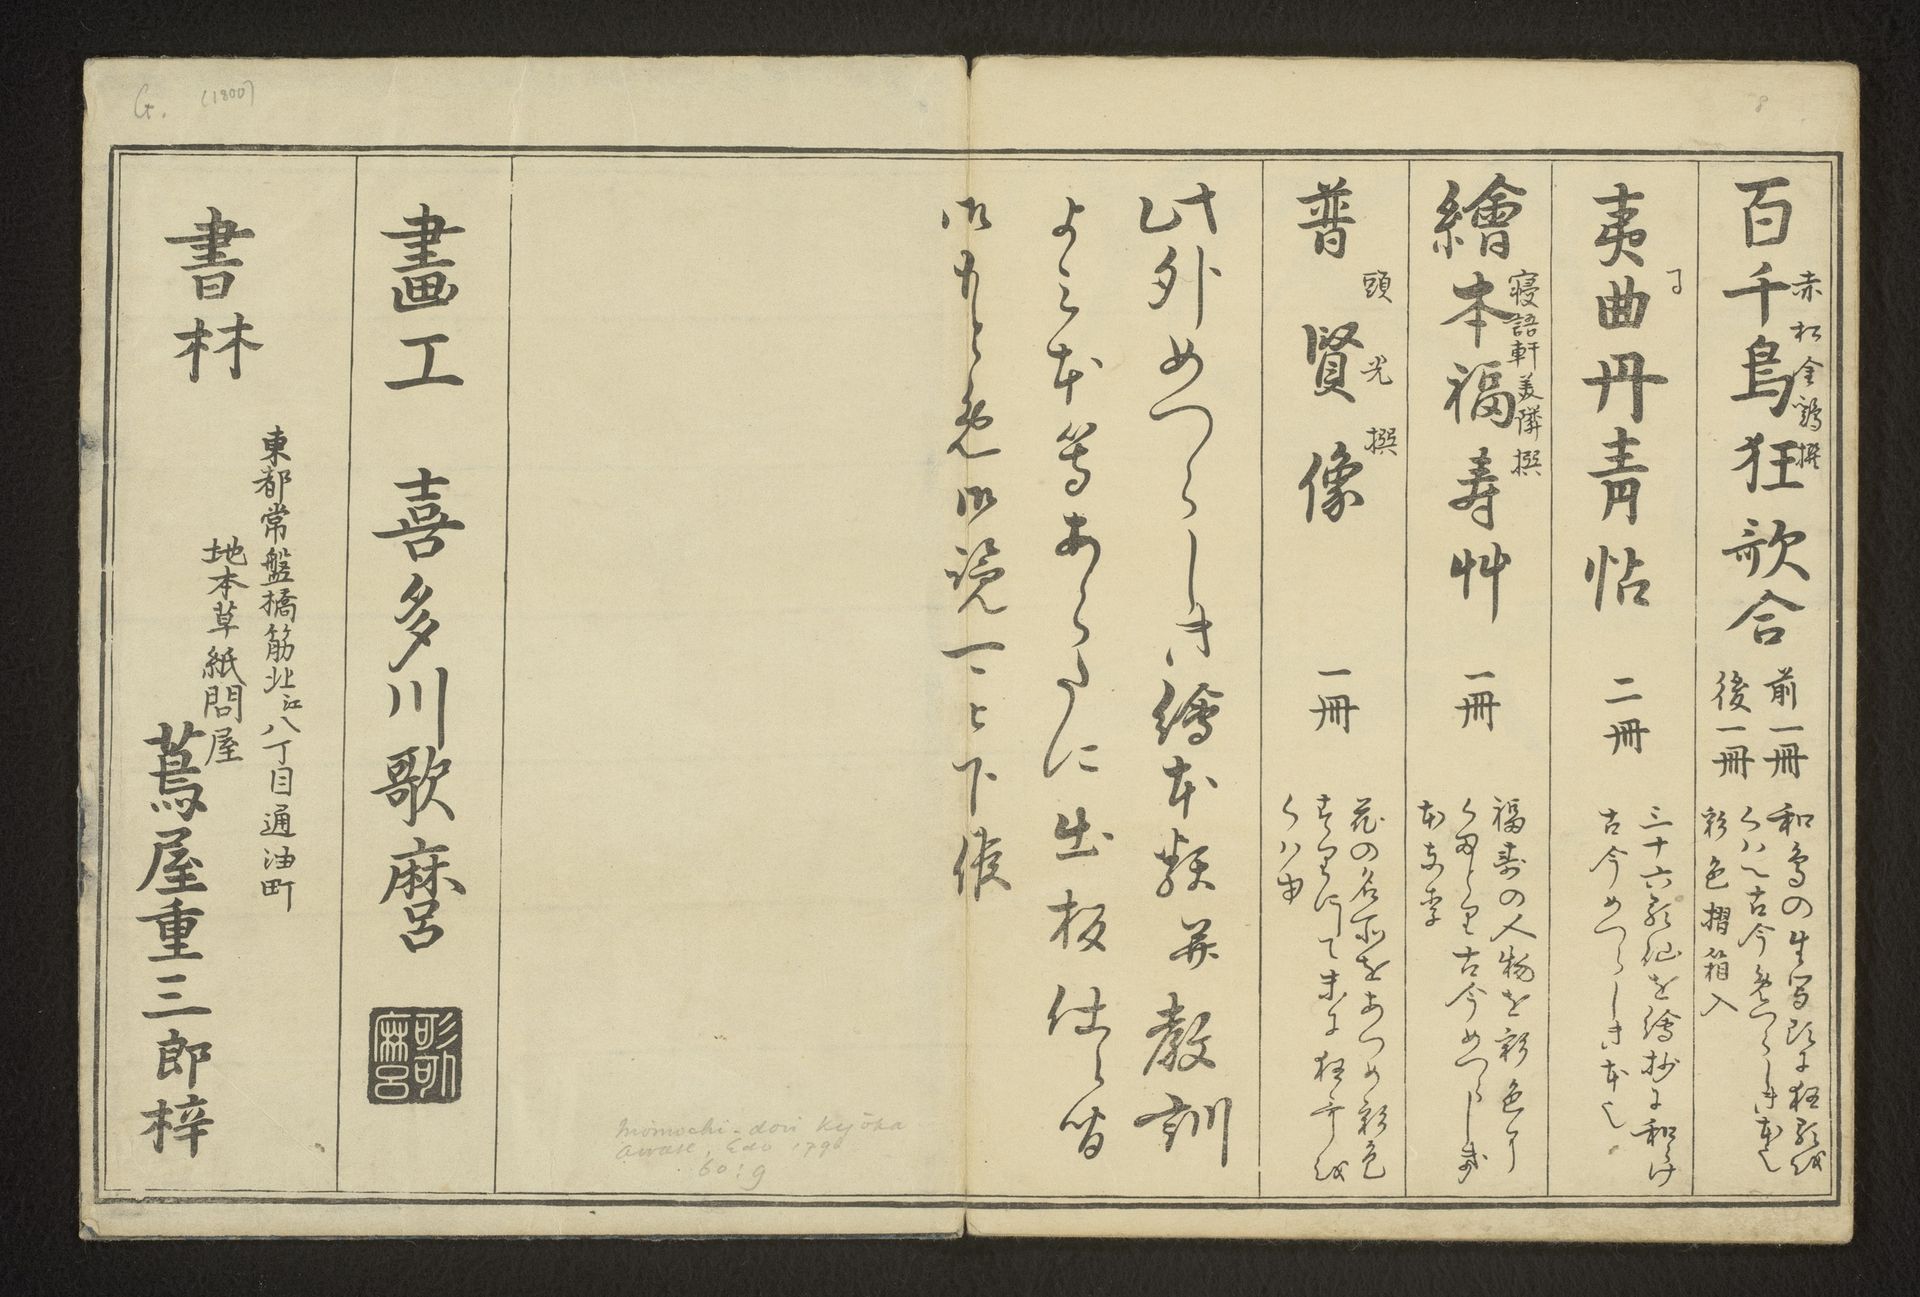 百千鳥狂歌合
赤松金鶏撰
前一冊
後一冊
和鳥の生写
古今めつらしき
彩色摺箱入
夷曲丹青帖
二冊
三十六歌仙を繪抄に和らけ
古今めつらしき本也
繪本福寿艸
寝語軒美隣撰
一冊
福寿の人物を彩色
古今めつらしき
普賢像
頭光撰
一冊
花の名所をあつめ彩色
すりにして末に狂哥
此外めつらしき繪本類并教訓
よミ本等あらたに出板仕候間
御もとめ御覧可被下候
畫工 喜多川歌麿
歌麿
書林
東都常盤橋筋北江八丁目通油町
地本草紙問屋
蔦屋重三郎梓
G. (1800)
8
Momochi-dori Kyōka
awase, Edo 1790
60:9